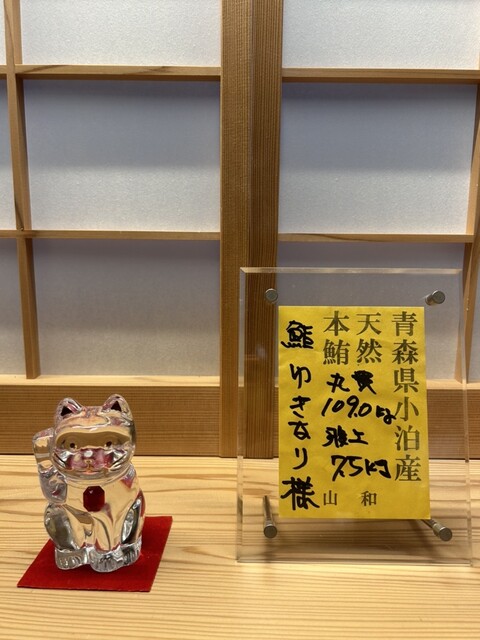 青森県小泊産
天然
本鮪
109.0kg
腹上
7.5kg
山和
鮨ゆきなり様